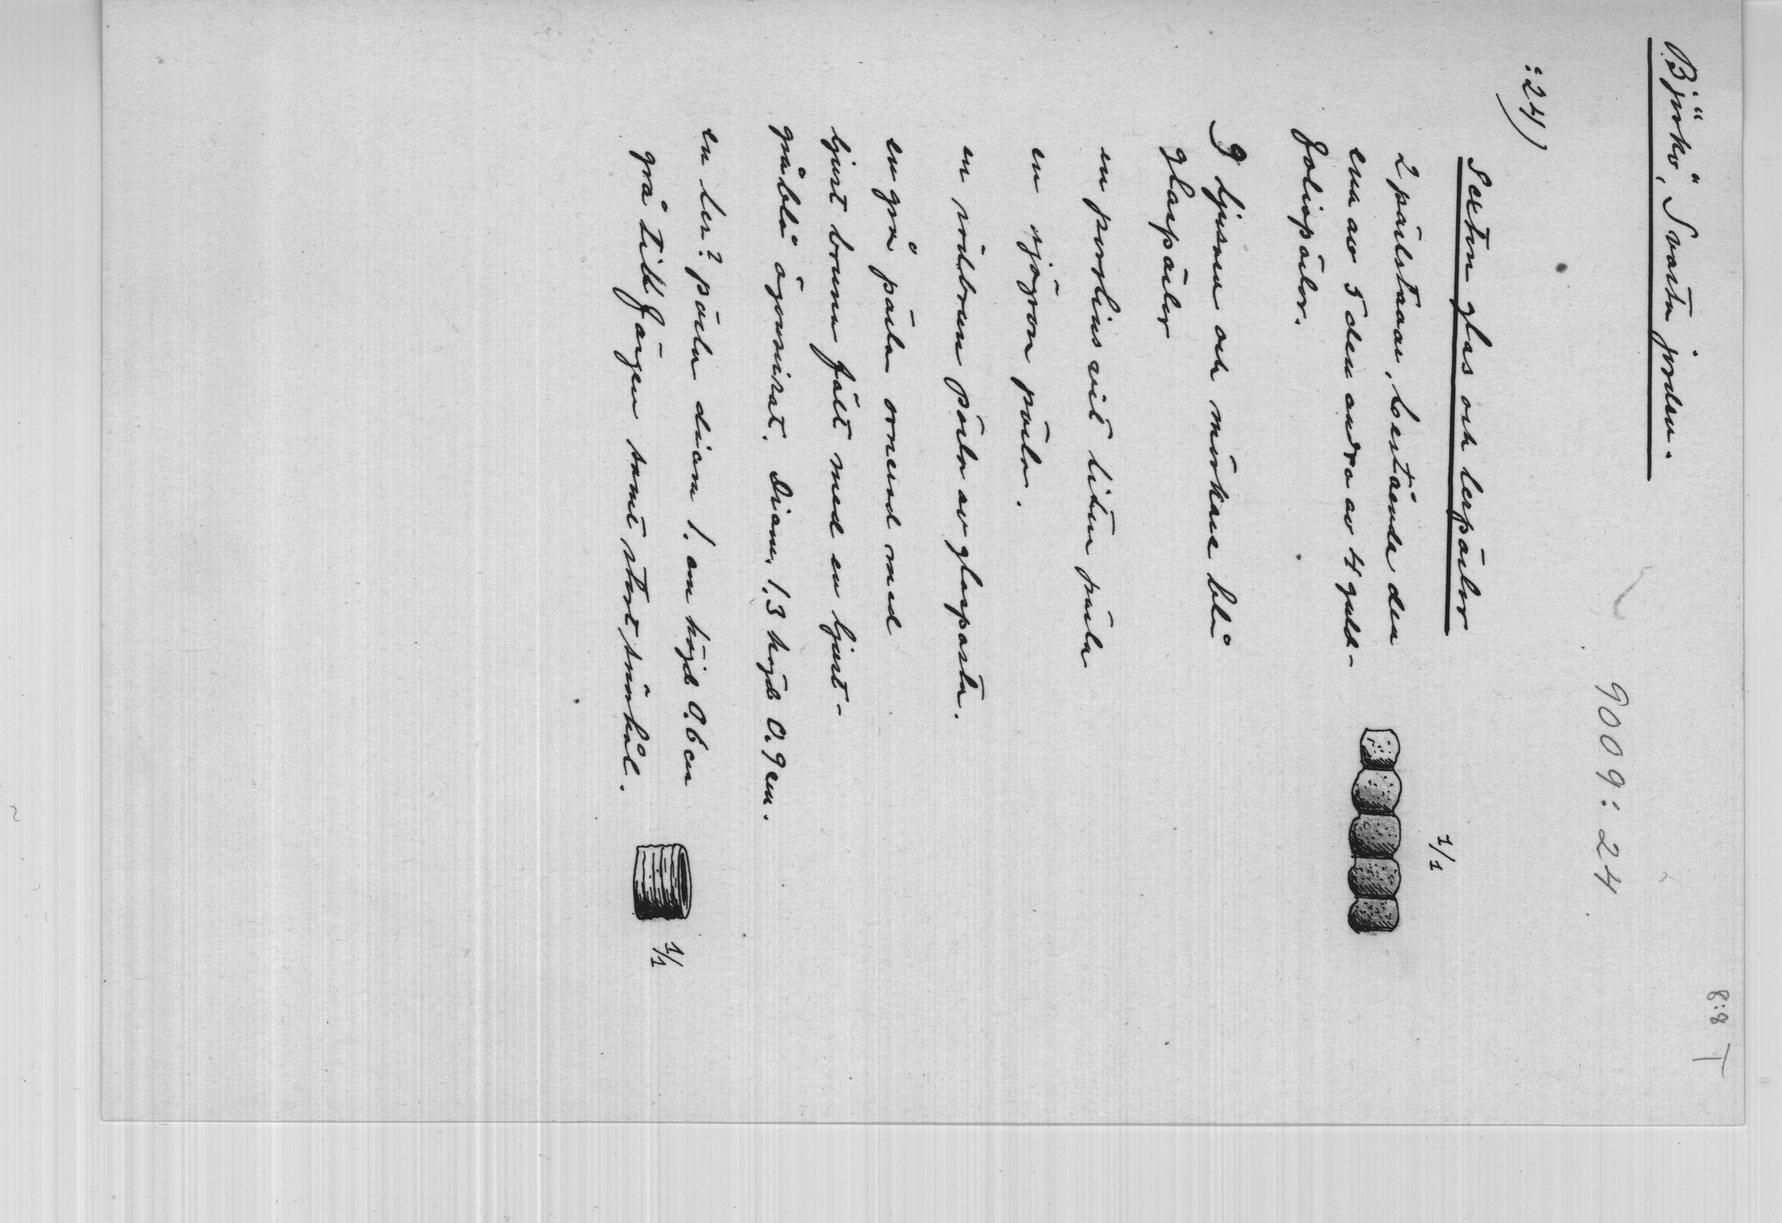 8:8 T
Björkö, Svarta jorden.
9009:24
:24)
Sexton glas och lerpärlor
2 pärlstavar, bestående den
ena av 5 den andra av 4 guld-
foliepärlor.
1/1
9 ljusare och mörkare blå
glaspärlor
en porslinsvit liten pärla
en sjögrön pärla.
en rödbrun pärla av glaspasta.
en grå pärla ornerad med
ljust bruna fält med en ljust-
gråblå ögonsirat. Diam. 1.3 höjd 0.9 cm.
en ler? pärla diam 1. cm höjd 0.6 cm
grå till färgen samt stort, hål.
1/1